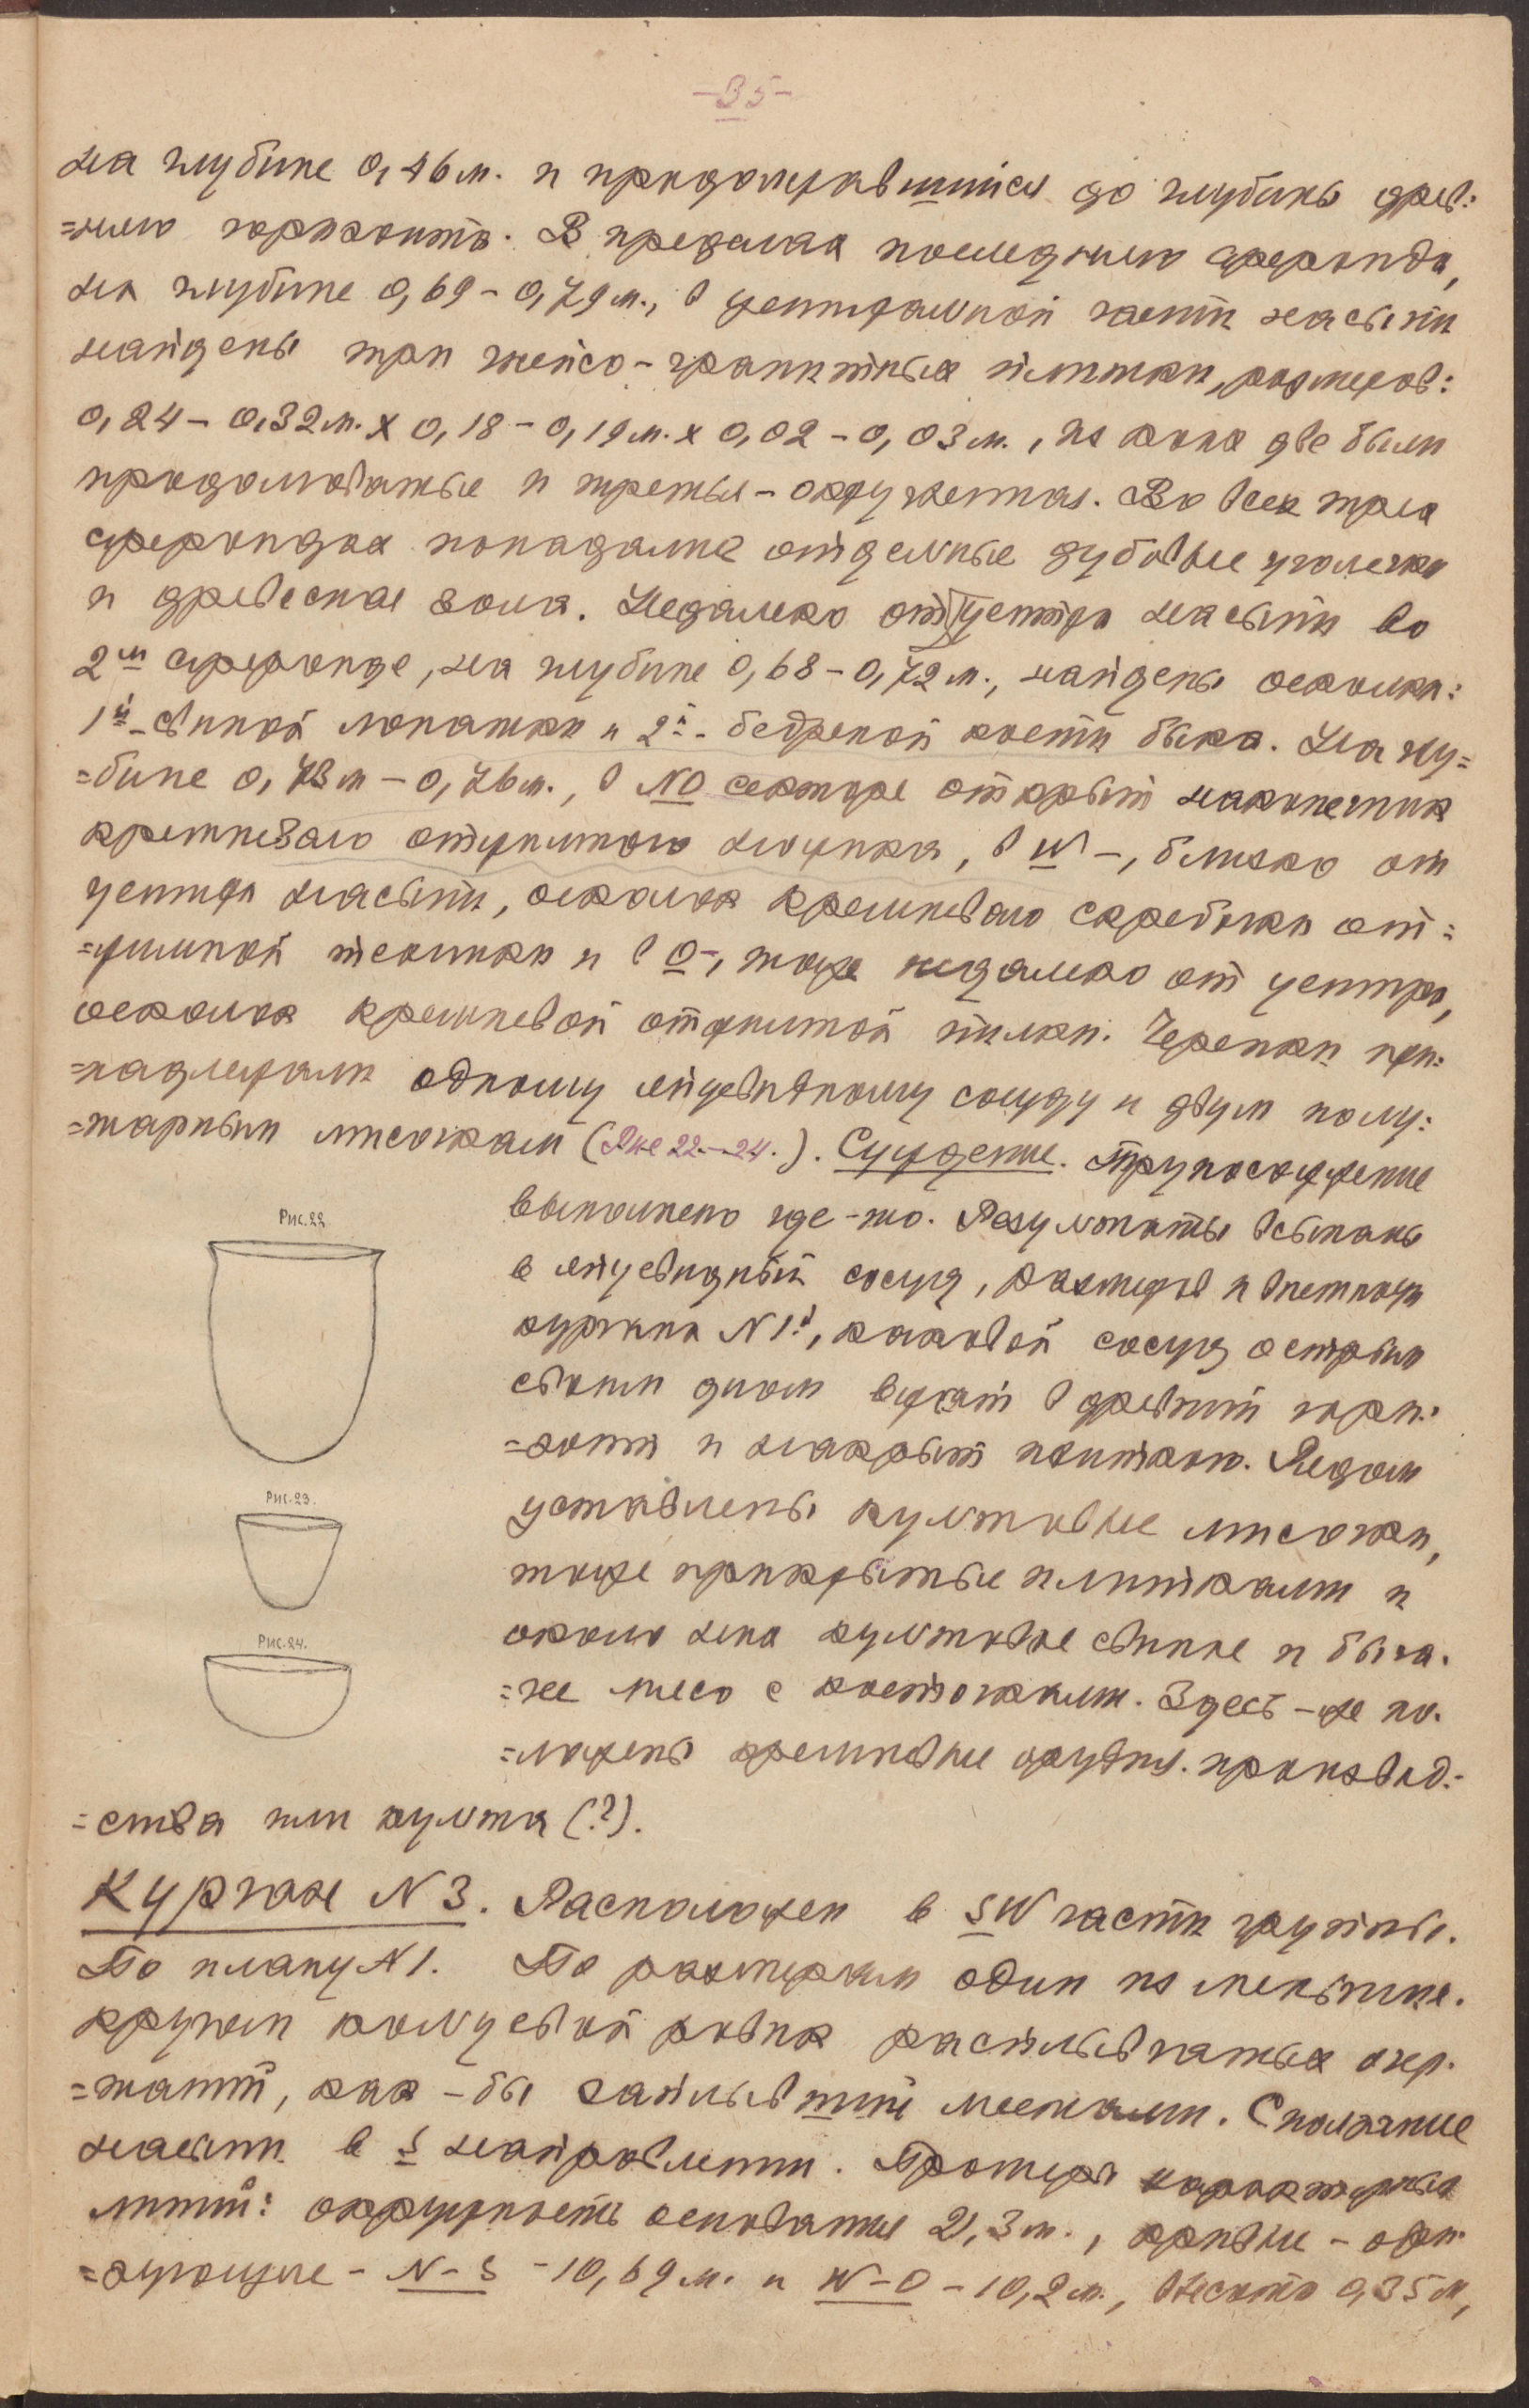 -35-
на глубине 0,46м. и продолжавшийся до глубины древ:
=него горизонта. В пределах последнего сфероида,
на глубине 0,69-0,79м., в центральной части насыпи
найдены три гнейсо-гранитных плитки, размеров:
0,24-0,32м. х 0,18-0,19м. х 0,02-0,03м., из коих две были
продолговатые и третья-округленная. Во всех трех
сфероидах попадались отдельные дубовые уголечки
и древесная зола. Недалеко от центра насыпи во
2м сфероиде, на глубине 0,68-0,72м., найдены осколки:
1й-свиной лопатки и 2й-бедреной кости быка. На глу=
=бине 0,73м-0,76м., в NO секторе открыт наконечник
кремневаго отбивного , в W-, близко от
центра насыпи, осколок кремневаго скребочка от=
=жимной техники и в O-, тоже недалеко от центра,
осколок кремневой отжимной пилки. Черепки при:
=надлежали одному яйцевидному сосуду и двум полу:
=шарным мисочкам (Рис 22.-24.). Суждение. Трупосожжение
выполнено где-то. Результаты всыпаны
в яйцевидный сосуд,
кургана N1й, каковой сосуд острым
своим дном вжат в древний гори:
=зонт и накрыт плиткою. Рядом
уставлены культовые мисочки,
тоже прикрытые плитками и
около них культовые свиное и быча.
=чье мясо с косточками. Здесь-же по.
=ложены кремневые орудия производ.-
=ства или культа (?).
Рис.22
Рис.23.
Рис.24.
Курган N3. Расположен в SW части группы.
По плану N1. По размерам один из меньших.
Кругом кольцевой ровик расплывчатых очер.
=таний, как-бы заплывший местами. Сползание
насыпи в S направлении. Промеры характерных
линий: окружность основания 21,3м., кривые-обра.
=зующие - N-S -10,69м. и W-O-10,2м., высота 0,35м,